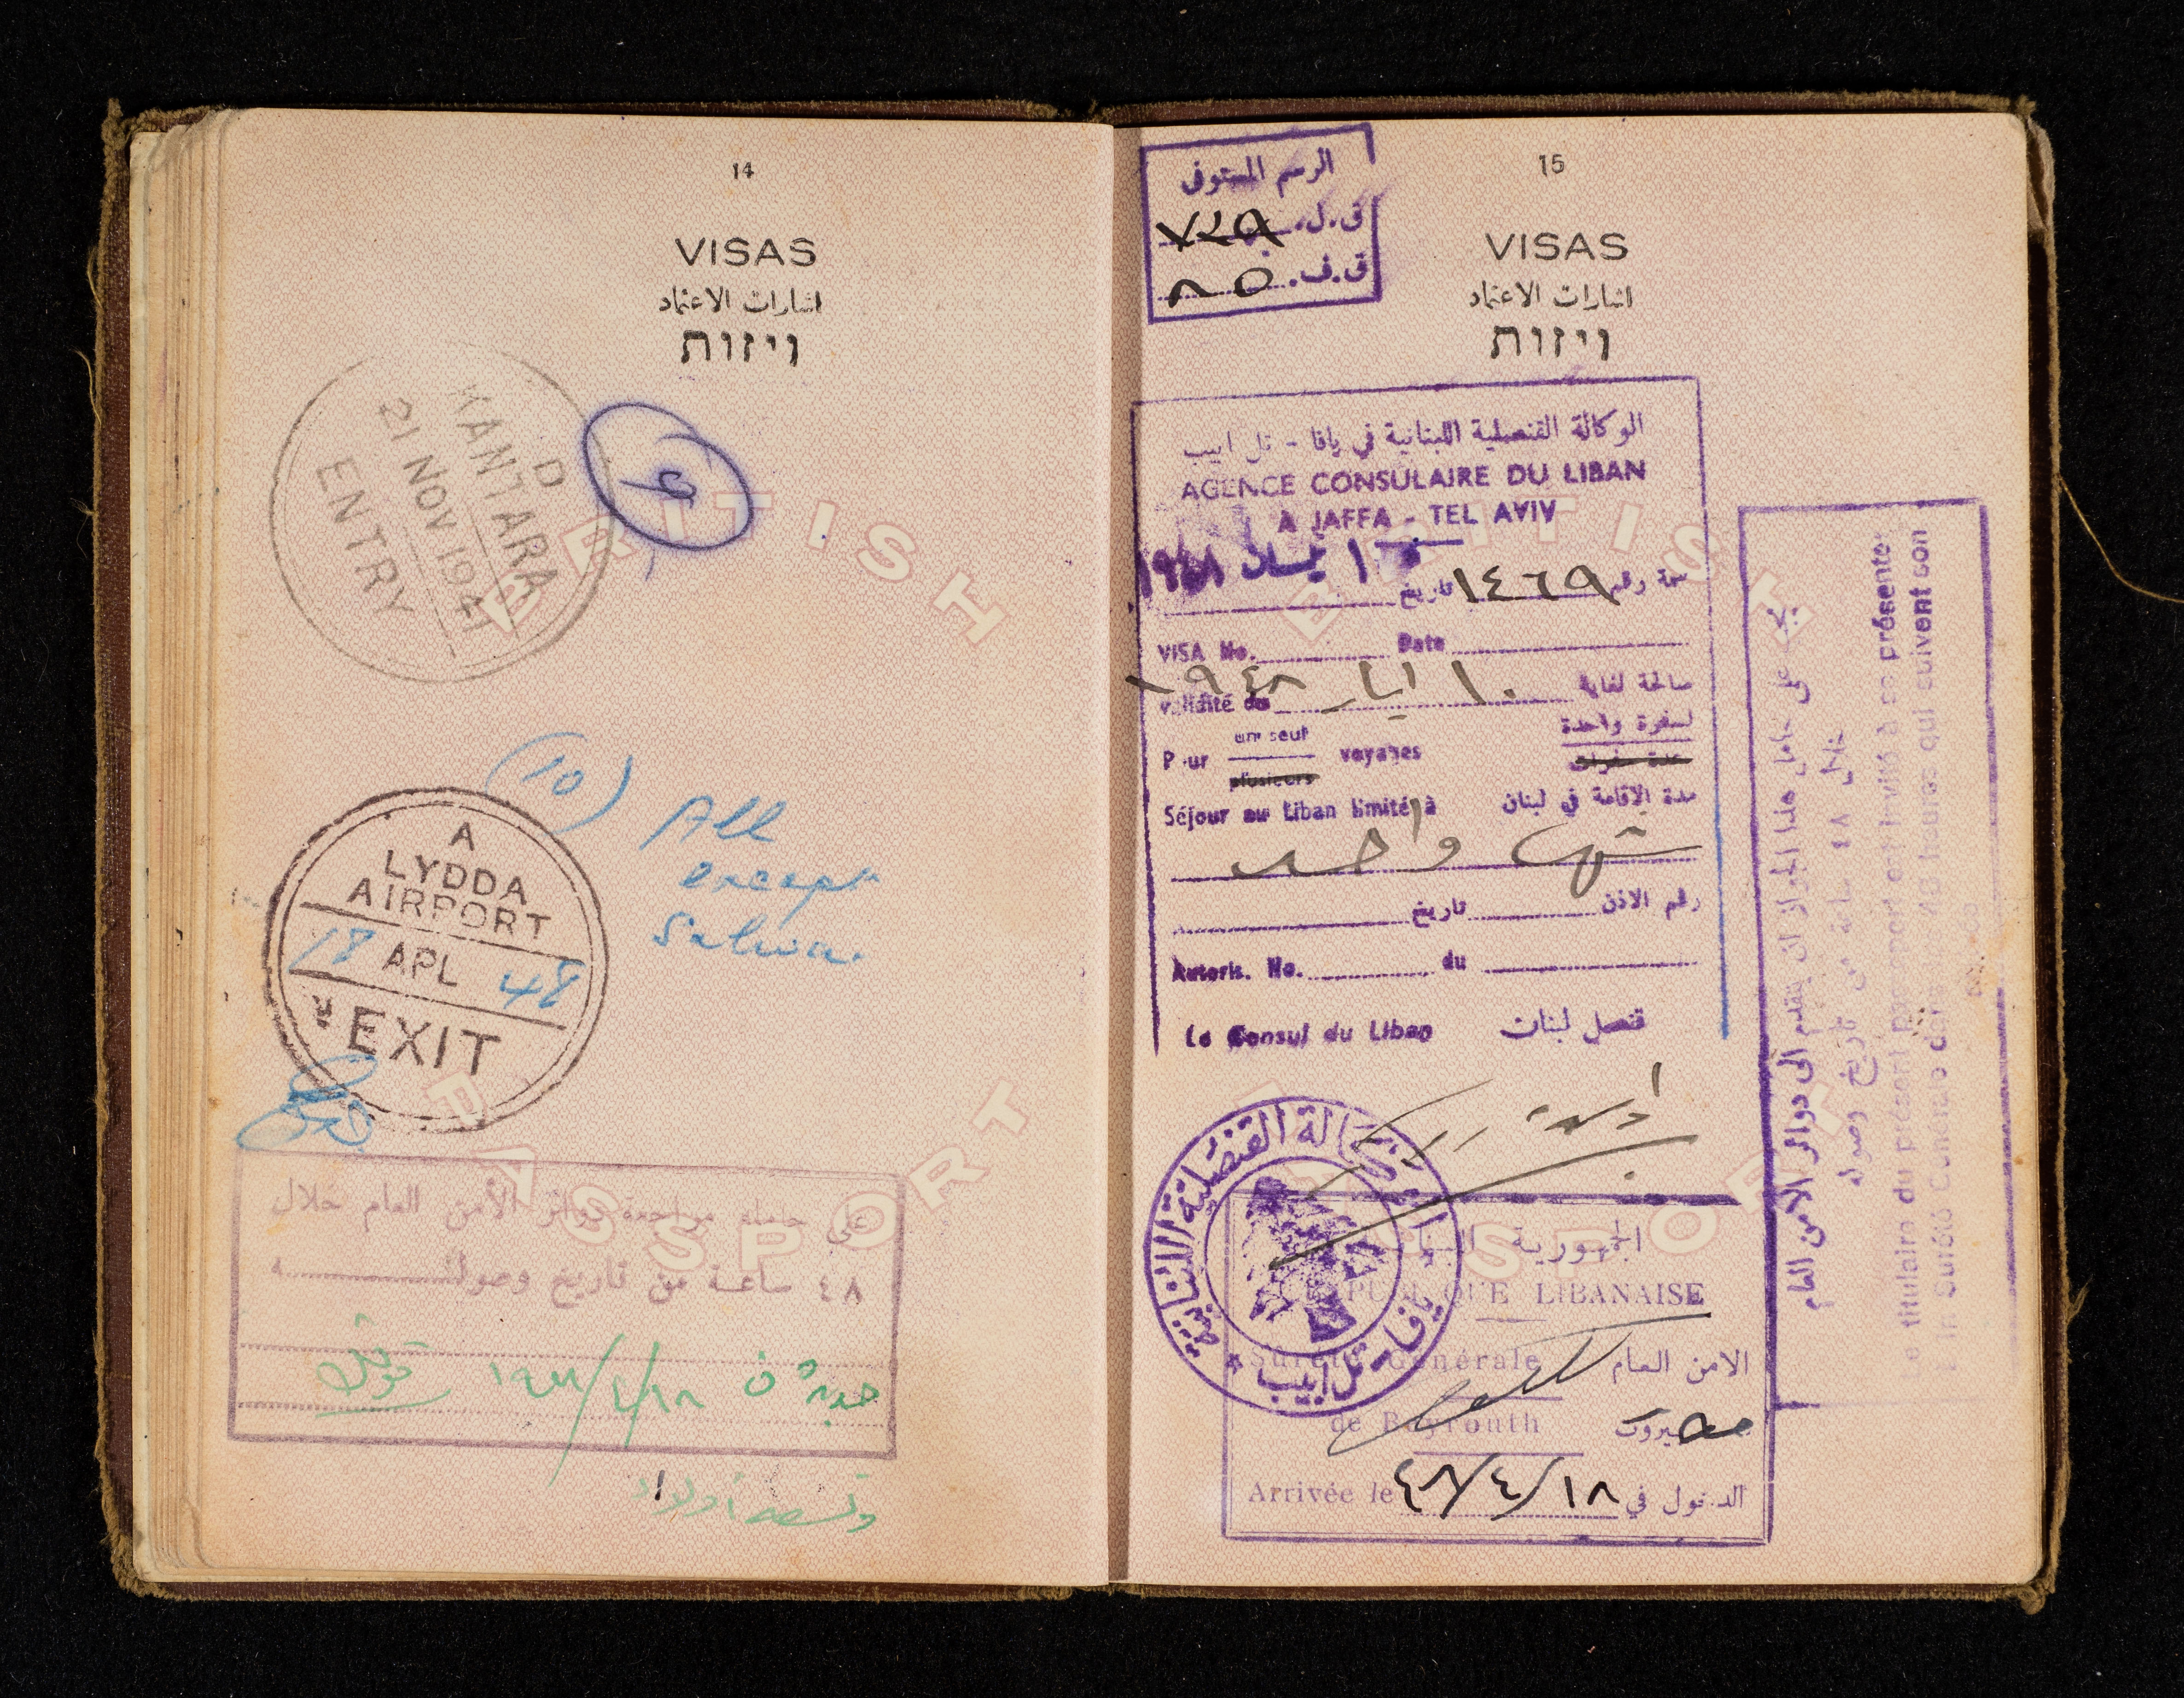 14
VISAS
اشارات الاعتماد
ויזות
D
KANTARA
21 NOV 194
ENTRY
BRITISH
(10) All
except
Salwa.
A
LYDDA
AIRPORT
18 APL 48
EXIT
PASSPORT
على حامله مراجعة دوائر الأمن العام خلال
٤٨ ساعة من تاريخ وصوله
15
VISAS
اشارات الاعتماد
ויזות
الرسم المستوفى
ق.ل. ٧٢٩
ق.ف. ٨٥
الوكالة القنصلية اللبنانية في يافا - تل ابيب
AGENCE CONSULAIRE DU LIBAN
A JAFFA - TEL AVIV
سمة رقم ١٤٦٩ تاريخ
VISA No. Date
صالحة لغاية ١٠ ايار ١٩٤٨
validité du
لسفرة واحدة
Pour un seul voyages
plusieurs عدة سفرات
Séjour au Liban limité à مدة الاقامة في لبنان
شهر واحد
رقم الاذن تاريخ
Autoris. No. du
Le Consul du Liban قنصل لبنان
الوكالة القنصلية اللبنانية
يافا - تل ابيب
الجمهورية اللبنانية
REPUBLIQUE LIBANAISE
Sûreté Générale الامن العام
de Beyrouth بيروت
Arrivée le ٤٨/٤/١٨ الدخول في
BRITISH
PASSPORT
على حامل هذا الجواز ان يتقدم الى دوائر الامن العام
خلال ٤٨ ساعة من تاريخ وصوله
Le titulaire du présent passeport est invité à se présenter
à la Sûreté Générale dans les 48 heures qui suivent son